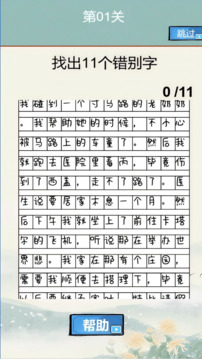 第01关
跳过
找出11个错别字
0 /11
我碰到一个寸马路的老奶奶
。我帮助她的时候，不小心
被马路上的车童了。然后我
就跑去医院里看丙，毕竟伤
到了西盖，走不了路了。医
生说要居家木息一个月。然
后下午我就坐上了前住卡塔
尔的飞机，听说那在举办也
界悲。我家在那有个庄园，
需要我顺便去搭理下，毕竟
帮助